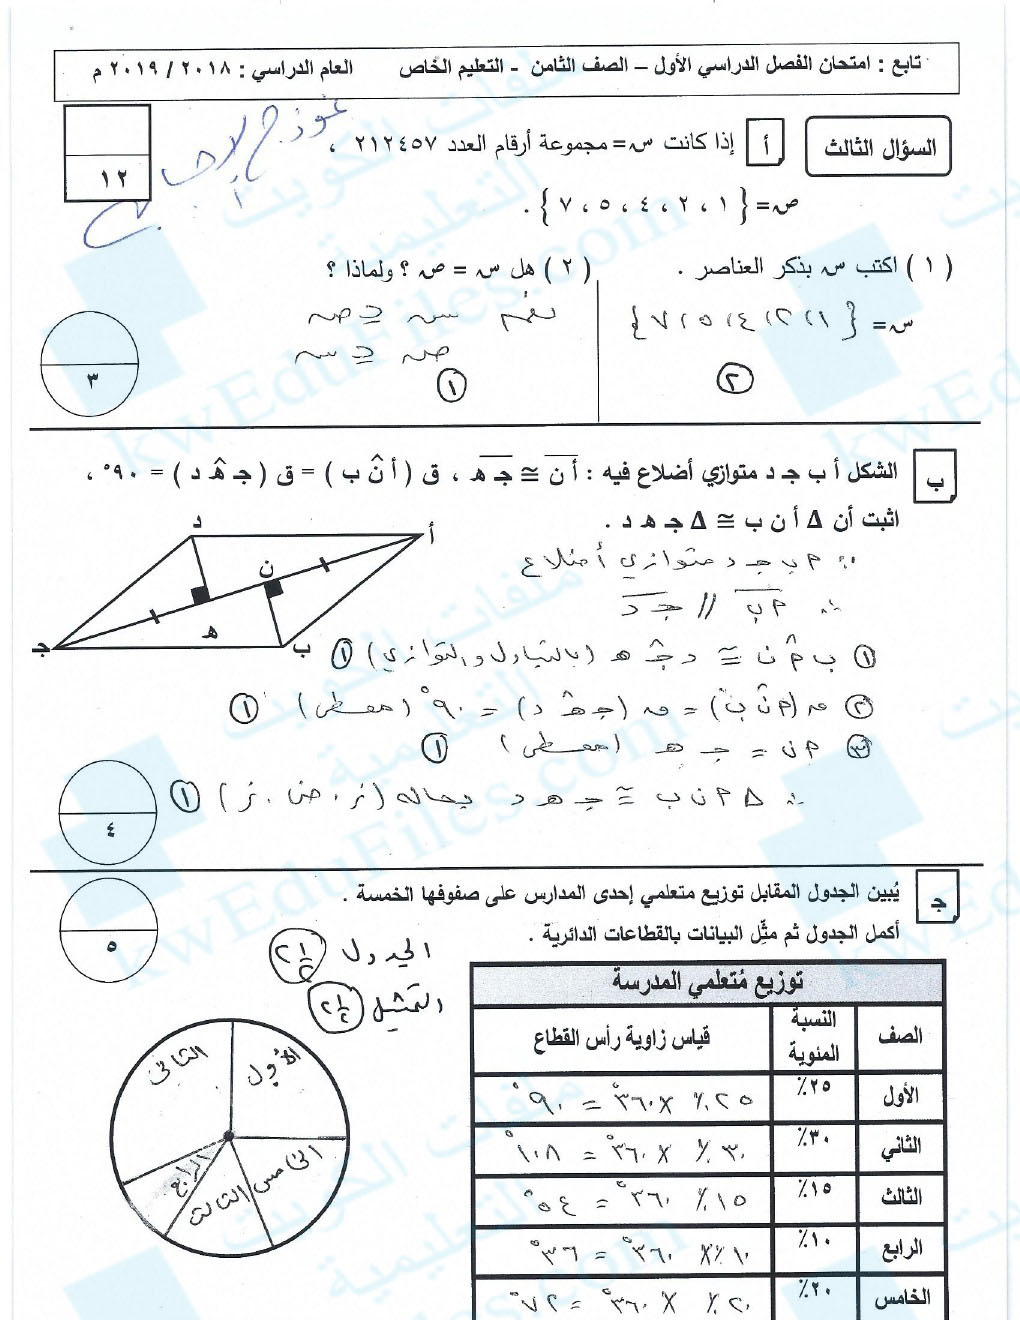 تابع : امتحان الفصل الدراسي الأول – الصف الثامن - التعليم الخاص العام الدراسي : ٢٠١٨ / ٢٠١٩ م
نموذج الإجابة
١٢
السؤال الثالث
أ إذا كانت س = مجموعة أرقام العدد ٢١٢٤٥٧ ،
ص = { ١ ، ٢ ، ٤ ، ٥ ، ٧ } .
( ١ ) اكتب س بذكر العناصر .
س = { ١ ، ٢ ، ٤ ، ٥ ، ٧ }
٢
( ٢ ) هل س = ص ؟ ولماذا ؟
نعم س ⊆ ص
ص ⊆ س
١
٣
ب الشكل أ ب جـ د متوازي أضلاع فيه : أن ≅ جـ هـ ، ق ( أ ن̂ ب ) = ق ( جـ هـ̂ د ) = ٩٠° ،
اثبت أن ∆ أ ن ب ≅ ∆ جـ هـ د .
د أ ن هـ ب جـ
∵ م ب جـ د متوازي أضلاع
∴ م ب // جـ د
① ب م̂ ن ≅ د جـ̂ هـ (بالتبادل والتوازي) ①
② ق (م ن̂ ب) = ق (جـ هـ̂ د) = ٩٠° (معطى) ①
③ م ن = جـ هـ (معطى) ①
∴ ∆ م ن ب ≅ جـ هـ د بحالة (ز . ض . ز) ①
٤
جـ يُبين الجدول المقابل توزيع متعلمي إحدى المدارس على صفوفها الخمسة .
أكمل الجدول ثم مثِّل البيانات بالقطاعات الدائرية .
٥
الجدول ٢ ١/٢
التمثيل ٢ ١/٢
توزيع مُتعلمي المدرسة
الصف النسبة المئوية قياس زاوية رأس القطاع
الأول ٢٥٪ ٢٥٪ × ٣٦٠° = ٩٠°
الثاني ٣٠٪ ٣٠٪ × ٣٦٠° = ١٠٨°
الثالث ١٥٪ ١٥٪ × ٣٦٠° = ٥٤°
الرابع ١٠٪ ١٠٪ × ٣٦٠° = ٣٦°
الخامس ٢٠٪ ٢٠٪ × ٣٦٠° = ٧٢°
الأول
الثاني
الرابع
الثالث
الخامس
ملفات الكويت التعليمية
kwEduFiles.com